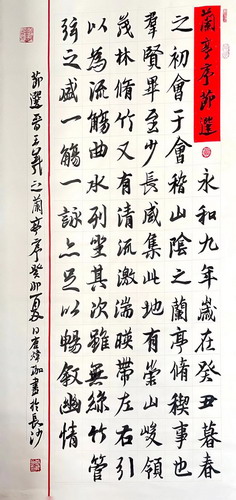 蘭亭序節選
永和九年歲在癸丑暮春
之初會于會稽山陰之蘭亭脩稧事也
羣賢畢至少長咸集此地有崇山峻領
茂林脩竹又有清流激湍暎帶左右引
以為流觴曲水列坐其次雖無絲竹管
弦之盛一觴一詠亦足以暢敘幽情
節選晋王羲之蘭亭序癸卯夏日唐煒珈書於長沙